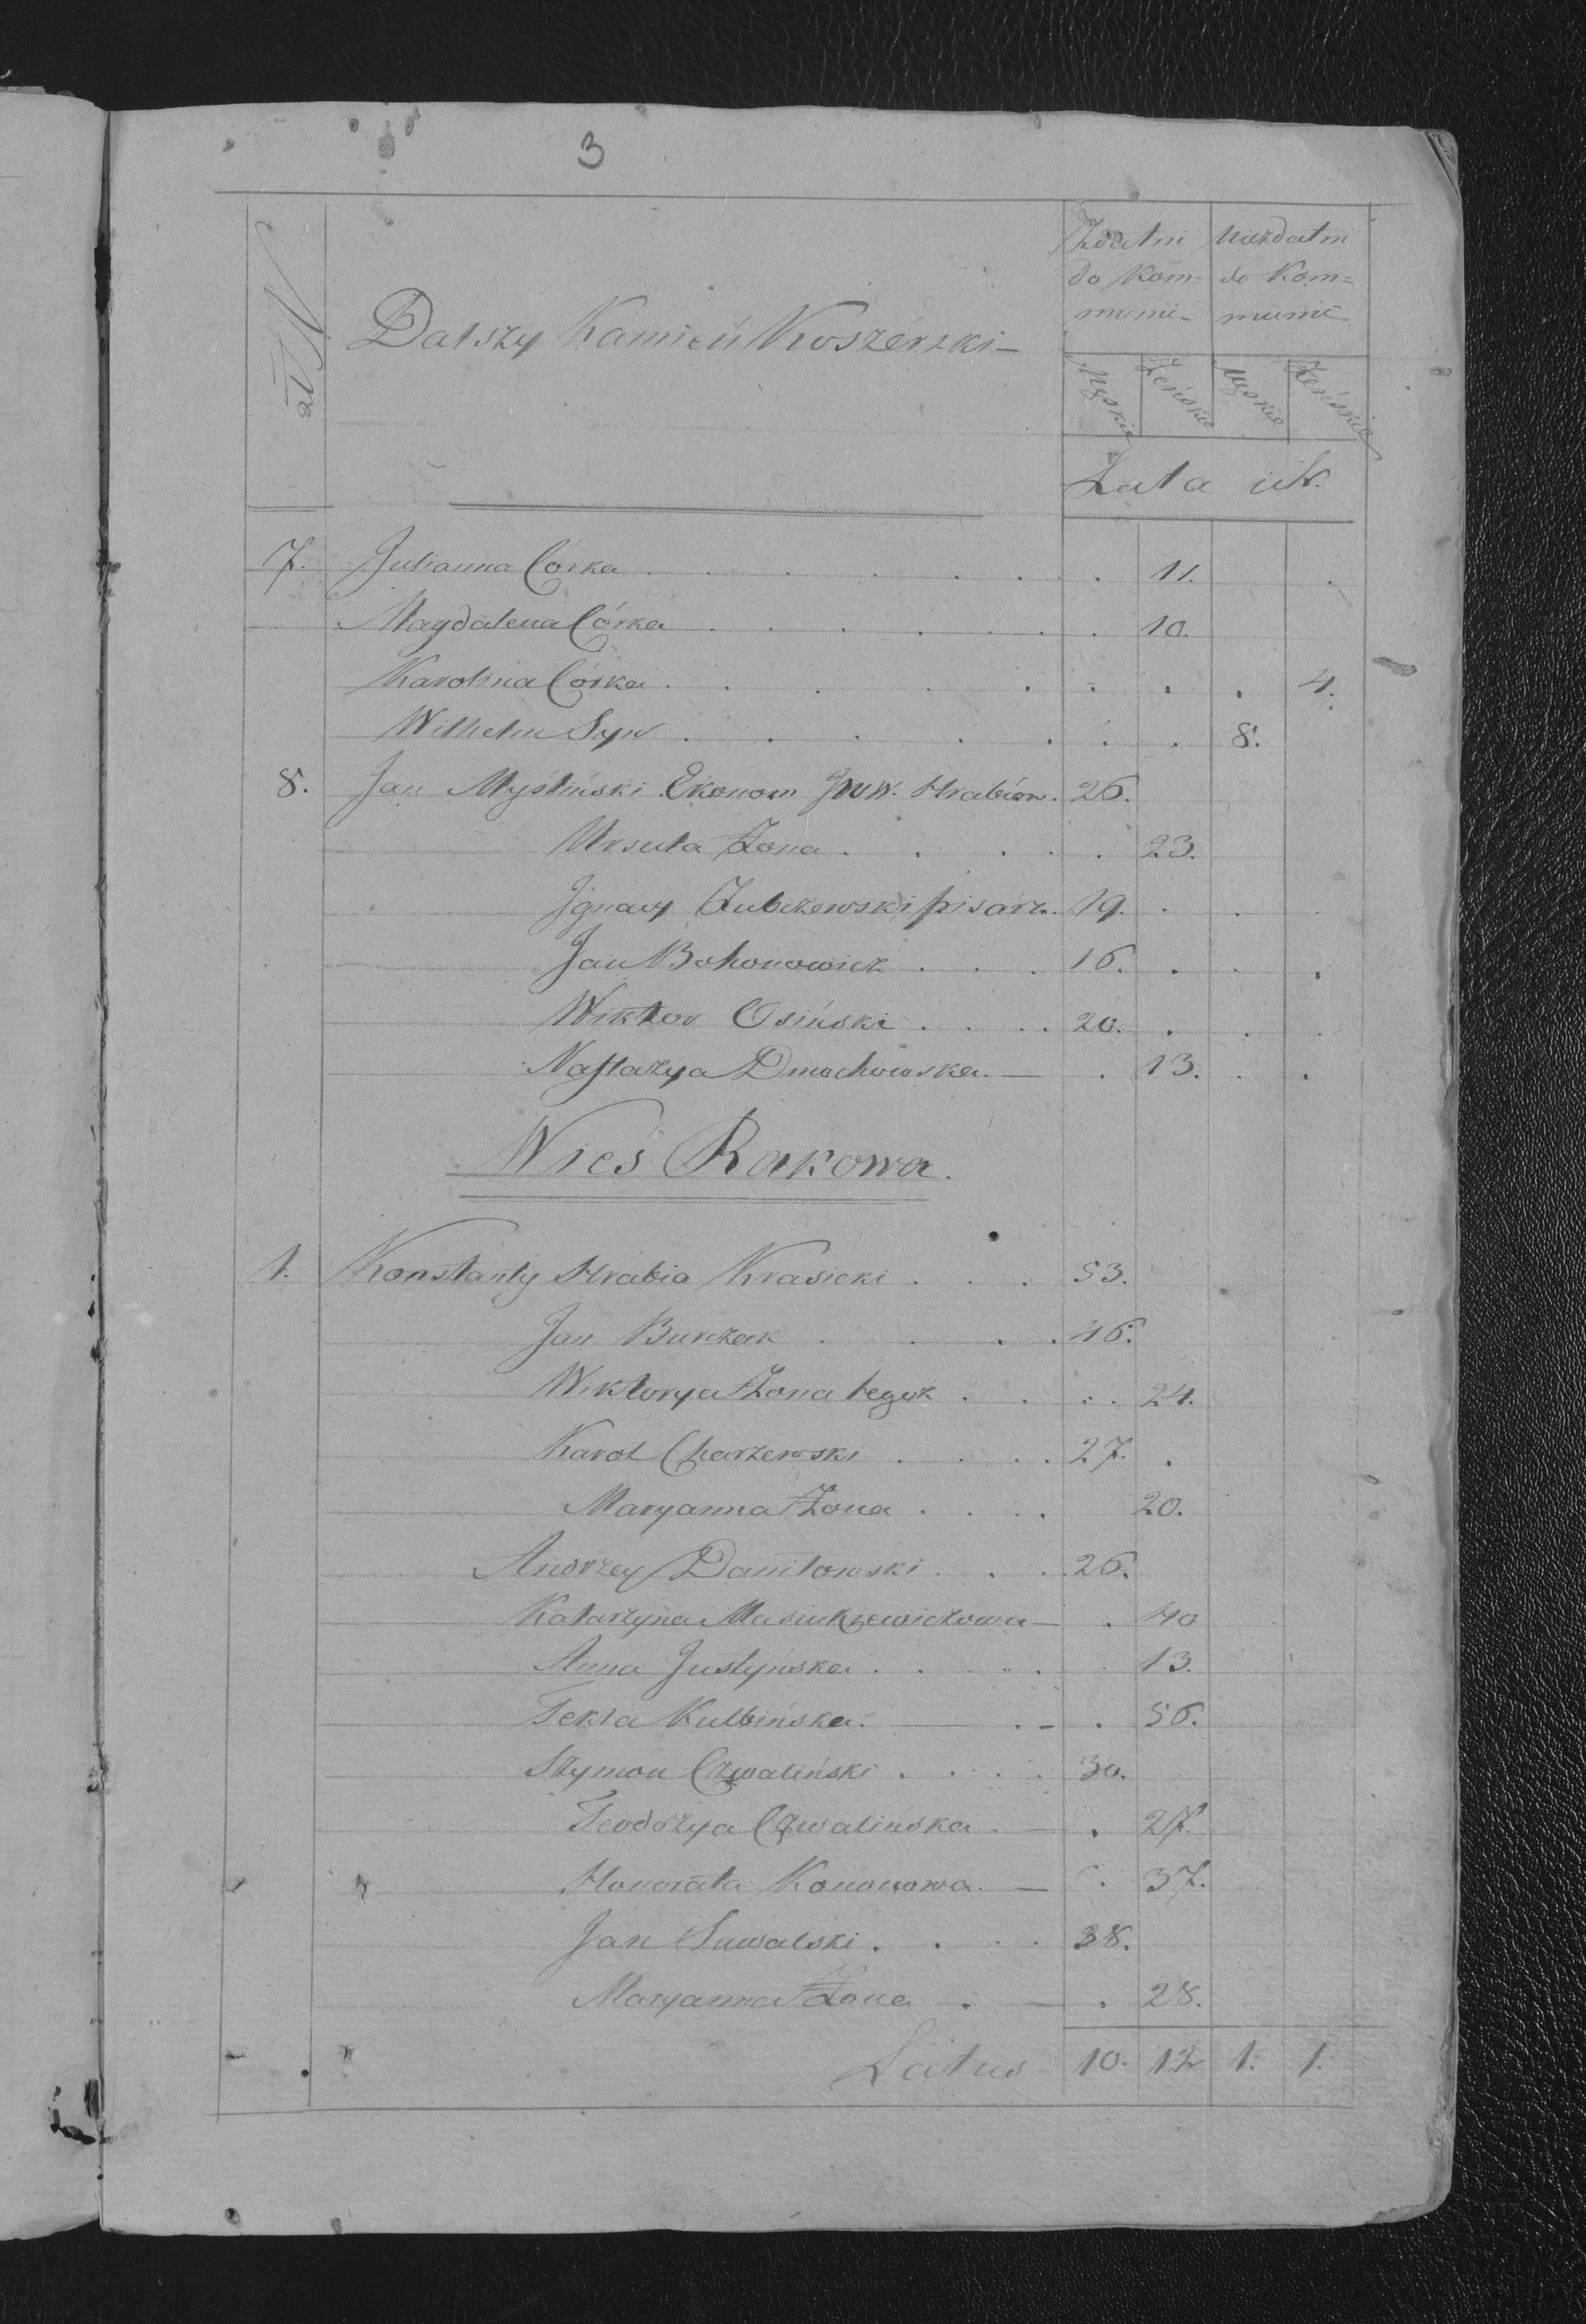 3
NN
Zdatni do Kommunii Niezdatni do Kommunii
Dalszy Kamień Koszérzki
Męskie Żeńskie Męskie Żeńskie
Lata ich.
7. Julianna Córka . . . . . . . 11. .
Magdalena Córka . . . . . . . 10.
Karolina Córka . . . . . . . . 4.
Wilhelm Syn . . . . . . . 8.
8. Jan Myśliński Ekonom JWW. Hrabiów. 26.
Ursula Żona . . . . . 23.
Jgnacy Zubczewski pisarz. 19. . . .
Jan Bohonowicz . . . 16. . . .
Wiktor Osiński . . . . 20. . . .
Nastazya Dmochowska. — . 13. . .
Wieś Rakowa.
1. Konstanty Hrabia Krasicki . . . 53.
Jan Burczak . . . . 46.
Wiktorya Żona tegoż . . . . 24.
Karol Charzewski . . . . 27. .
Maryanna Żona . . . . 20.
Andrzey Daniłowski . . . 26.
Katarzyna — . 40
Anna Justyńska . . . . . 13.
Tekla Kulbińska. — . - . 56.
Szymon Czwaliński . . . . 30.
Teodozya Czwalińska . — . 27.
Honorata Kononowa. — . 37.
Jan Suwalski . . . . 38.
Maryanna Żona . — . 28.
Latus 10. 12 1. 1.